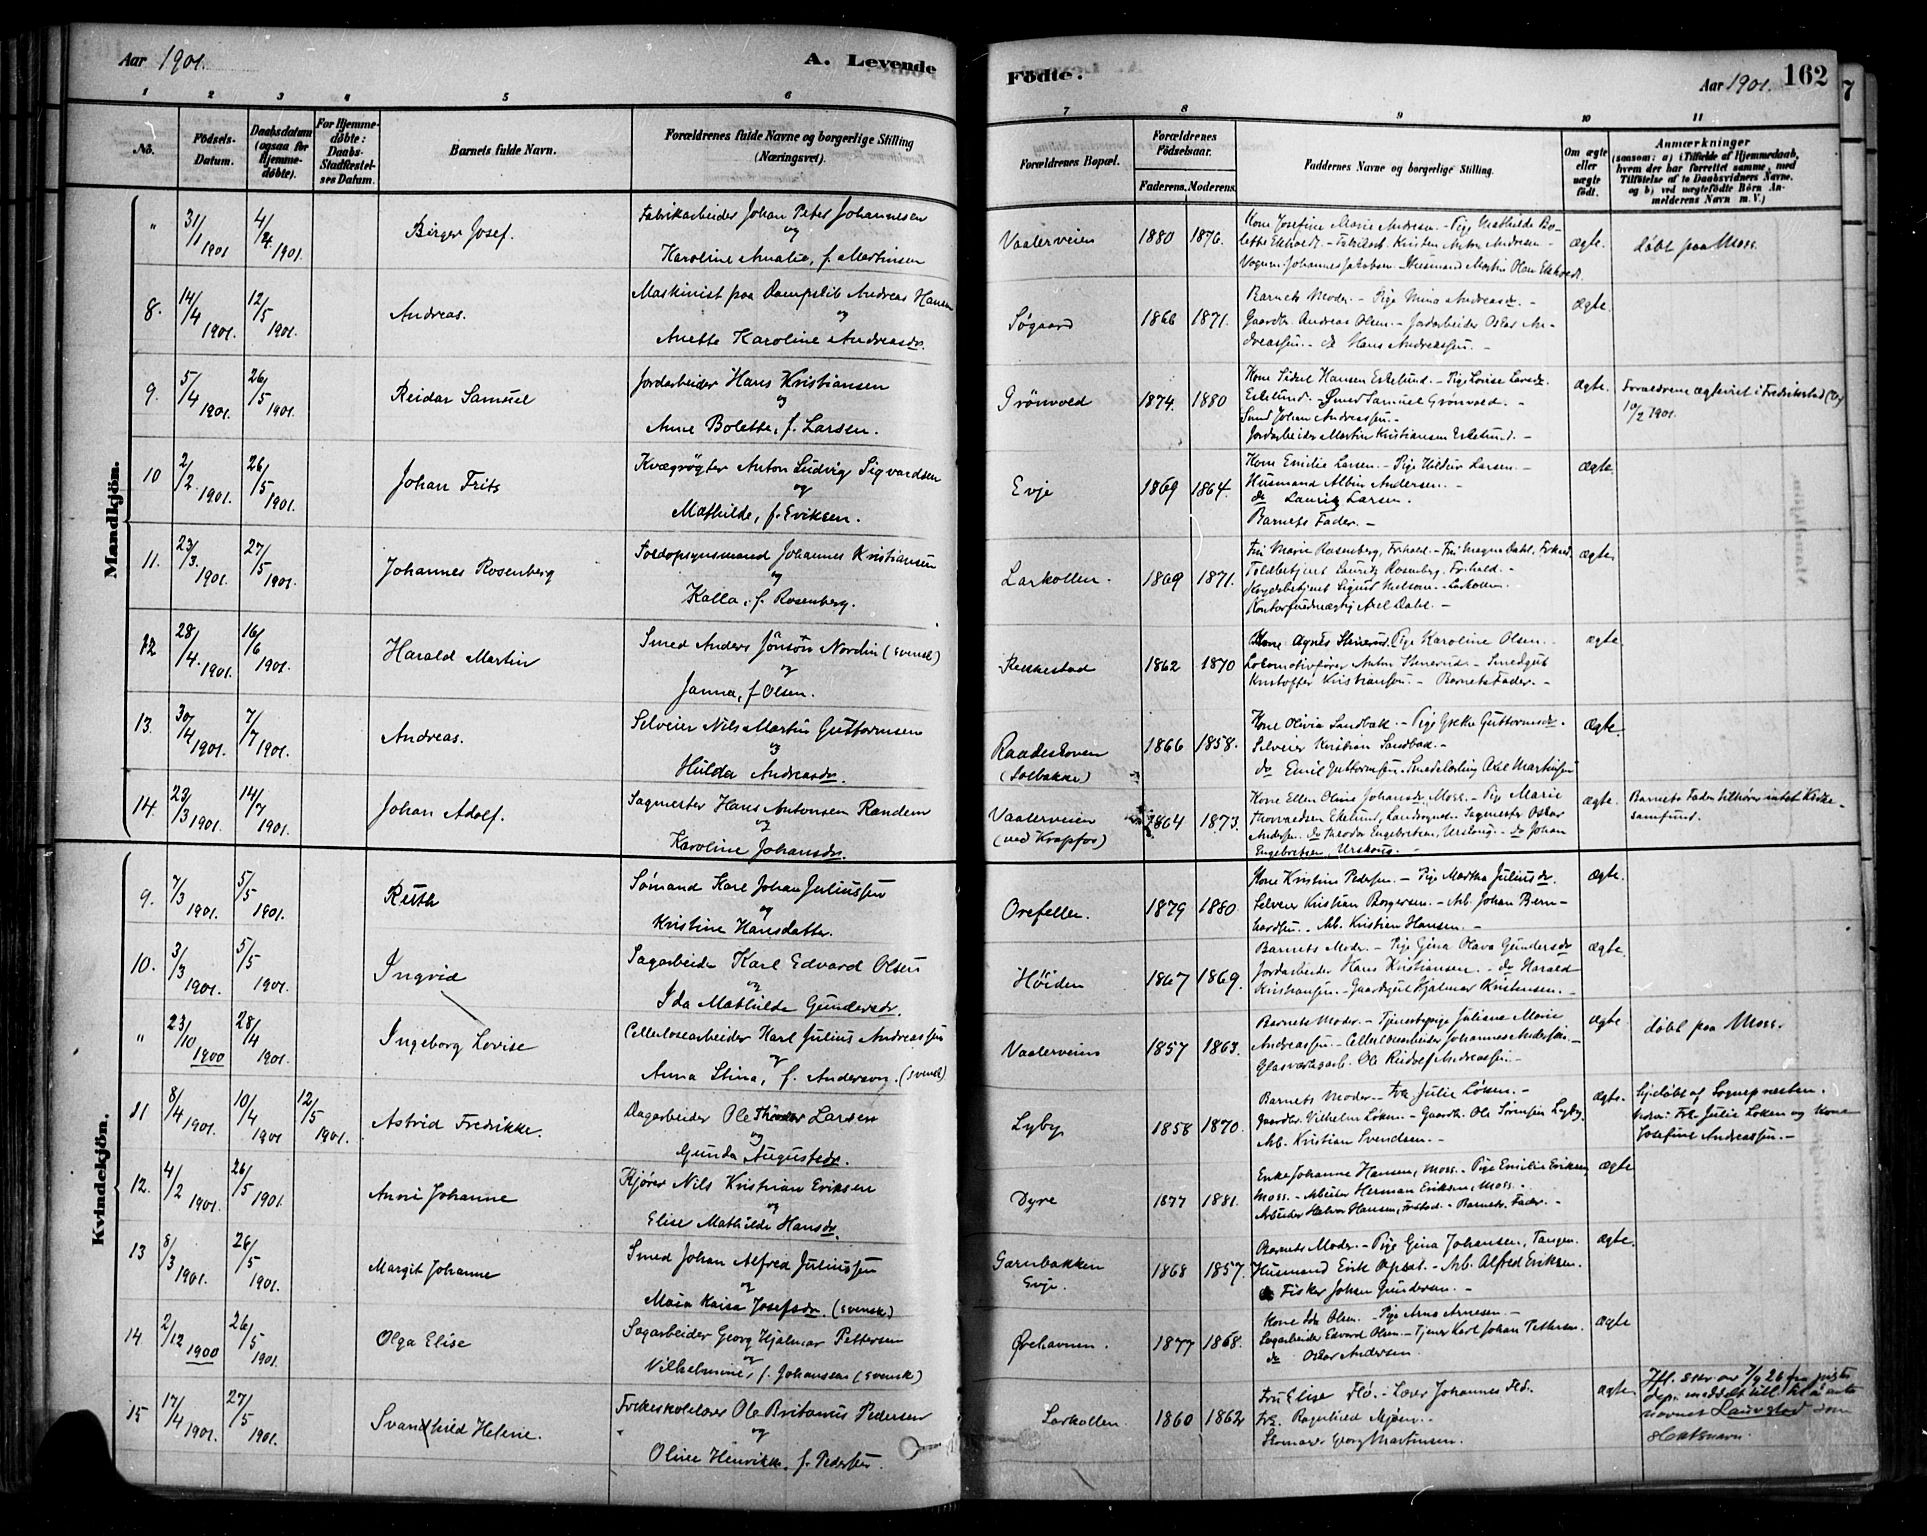 Aar 1901.
A. Levende
1 2 3 4 5 6
No.
Fødsels-Datum.
Daabsdatum (ogsaa for Hjemme-døbte).
For Hjemme-døbte: Daabs-Stadfæstel-ses Datum.
Barnets fulde Navn.
Forældrenes fulde Navne og borgerlige Stilling (Næringsvei).
Mandkjön.
" 31/1 1901 4/4 1901. Birger Josef. Fabrikarbeider Johan Peter Johannesen
og
Karoline Amalie, f. Martinsen
8. 14/4 1901. 12/5 1901. Andreas. Maskinist paa Dampskib Andreas Hansen
og
Anette Karoline Andreasdr.
9. 5/4 1901. 26/5 1901. Reidar Samuel Jordarbeider Hans Kristiansen
og
Anne Bolette, f. Larsen.
10 2/2 1901. 26/5 1901. Johan Frits Kvægrøgter Anton Ludvig Sigvardsen
og
Mathilde, f. Eriksen.
11. 23/3 1901. 27/5 1901. Johannes Rosenberg Toldopsynsmand Johannes Kristiansen
og
Kalla, f. Rosenberg.
12 28/4 1901. 16/6 1901. Harald Martin Smed Anders Jönson Nordin (svensk)
og
Janna, f. Olsen.
13. 30/4 1901. 7/7 1901. Andreas. Selveier Nils Martin Guttormsen
og
Hulda Andreasdr.
14. 23/3 1901. 14/7 1901. Johan Adolf. Sagmester Hans Antonsen Randem
og
Karoline Johansdr.
Kvindekjön.
9. 7/3 1901. 5/5 1901. Ruth Sømand Karl Johan Juliussen
og
Kristine Hansdatter.
10. 3/3 1901. 5/5 1901. Ingrid Sagarbeider Karl Edvard Olsen
og
Ida Mathilde Gundersdr.
" 23/10 1900 28/4 1901. Ingeborg Lovise Cellulosearbeider Karl Julius Andreassen
og
Anna Stina, f. Anderson. (svensk)
11 8/4 1901. 10/4 1901 12/5 1901. Astrid Fredrikke. Dagarbeider Ole Theodor Larsen
og
Gunda Augustsdr.
12. 4/2 1901. 26/5 1901. Anni Johanne Kjører Nils Kristian Eriksen
og
Elise Mathilde Hansdr.
13 8/3 1901. 26/5 1901. Margit Johanne Smed Johan Alfred Juliussen
og
Maia Kaisa Josefsdr. (svensk)
14 2/12 1900 26/5 1901. Olga Elise Sagarbeider Georg Hjalmar Pettersen
og
Vilhelmine, f. Johansen (svensk)
15 17/4 1901. 27/5 1901. Svanhild Helene. Folkeskolelærer Ole Britanus Pedersen
og
Oline Henrikke, f. Pedersen.
Födte.
Aar 1901. 162
7 8 9 10 11
Forældrenes Bopæl.
Forældrenes Fødselsaar.
Faderens. Moderens.
Faddernes Navne og borgerlige Stilling.
Om ægte eller uægte født.
Anmærkninger
(saasom: a) i Tilfælde af Hjemmedaab, hvem der har forrettet samme, med Tilføielse af to Daabsvidners Navne. og b) ved uægtefødte Børn Anmelderens Navn m. V.)
Vaalerveien 1880 1876. Kone Josefine Marie Andresen. - Pige Mathilde Bo-
lette Ekholdt. - Fabrikarb. Kristen Anton Andresen -
Vognm. Johannes Jakobsen - Husmand Martin Olsen Ekholdt. ægte. døbt paa Moss.
Søgaard 1866 1871. Barnets Moder. - Pige Mina Andreasdr. -
Gaardbr. Andreas Olsen. - Jordarbeider Oskar An-
dreassen. - do Hans Andreassen. - ægte.
Grönvold 1874. 1880 Kone Sidsel Hansen Eskelund. - Pige Lovise Larsdr.
Eskelund. - Smed Samuel Grönvold. -
Smed Johan Andreassen. -
Jordarbeider Martin Kristiansen Eskelund. - ægte. Forældrene ægteviet i Fredrikstad
10/2 1901.
Evje 1869 1864. Kone Emilie Larsen. - Pige Hildur Larsen. -
Husmand Albin Andersen. -
do Lauritz Larsen.
Barnets Fader. - ægte.
Larkollen. 1869 1871. Fru Marie Rosenberg, Frhald. - Frk Magna Dahl, Frhald.
Toldbetjent Lauritz Rosenberg, Frhald. -
Sigurd Nielsen. - Larkollen. -
Kontorfuldmægtig Axel Dahl. - ægte.
Rekkestad 1862 1870 Kone Agnes Stenerud. Pige Karoline Olsen. -
Lokomotivfører Anton Stenerud. - Smedgut
Kristoffer Kristiansen. - Barnets Fader. - ægte
Raadeskoven
(Solbakke) 1866 1858. Kone Olivia Sandbæk. - Pige Grethe Guttormsdr.
Selveier Kristian Sandbæk. -
do Emil Guttormsen. Smedelærling Axel Martinsen ægte.
Vaalerveien
(ved Krapfos) 1864 1873. Kone Ellen Oline Johansdr. Moss. - Pige Marie
Thorvaldsen Ekelund, Landsognet. - Sagmester Oskar
Andersen. do Theodor Engebretsen, Urskoug. - do Johan
Engebretsen, Urskoug. - ægte. Barnets Fader tilhører intet Kirke-
samfund.
Orefellen. 1879 1880. Kone Kristine Pedersen. - Pige Martha Juliusdr.
Selveier Kristian Borgersen. - Arb. Johan Bern-
hardsen. - Arb. Kristian Hansen. - ægte.
Höiden 1867 1869. Barnets Moder. - Pige Gina Olava Gundersdr
Jordarbeider Hans Kristiansen. - do Harald
Kristiansen. - Gaardsgut Hjalmar Kristensen. - ægte.
Vaalerveien 1857 1863. Barnets Moder. - Tjenestepige Juliane Marie
Andreassen. - Cellulosearbeider Johannes Andersen. -
Glasværksarb. Ole Rudolf Andreassen. - ægte døbt paa Moss.
Lyby 1858 1870. Barnets Moder. - Frk. Julie Löken. -
Gaardbr. Vilhelm Löken. - Gaardbr. Ole Sörensen Lyby.
Arb. Kristian Svendsen. - ægte. hjdøbt af Sognepresten.
Vidner: Frk. Julie Løken og Kone
Josefine Andreassen. -
Dyre 1877 1881. Enke Johanne Hansen, Moss. - Pige Emilie Eriksen
Moss. - Arbeider Herman Eriksen, Moss. -
Arbeider Halvor Hansen, Frstad. - Barnets Fader. - ægte
Garnbakken
Evje. 1868 1857. Barnets Moder. - Pige Gina Johansen, Tangen.
Husmand Erik Opsal. - Arb. Alfred Eriksen.
Fisker Johan Gundersen. - ægte.
Ørehavnen. 1877 1868. Kone Olsen. - Pige Arna Arnesen. -
Sagarbeider Edvard Olsen. - Tjener Karl Johan Pettersen.
do Oskar Andersen. ægte
Larkollen. 1860 1862 Fru Elise Flö. - Lærer Johannes Flö.
Frk. Ragnhild Mjøen. -
Skomager Georg Martinsen. ægte Ifl. skr. av 7/9 26 fra justis
dep. meddelt till. til å anta
navnet Lauvstad som
slektsnavn.